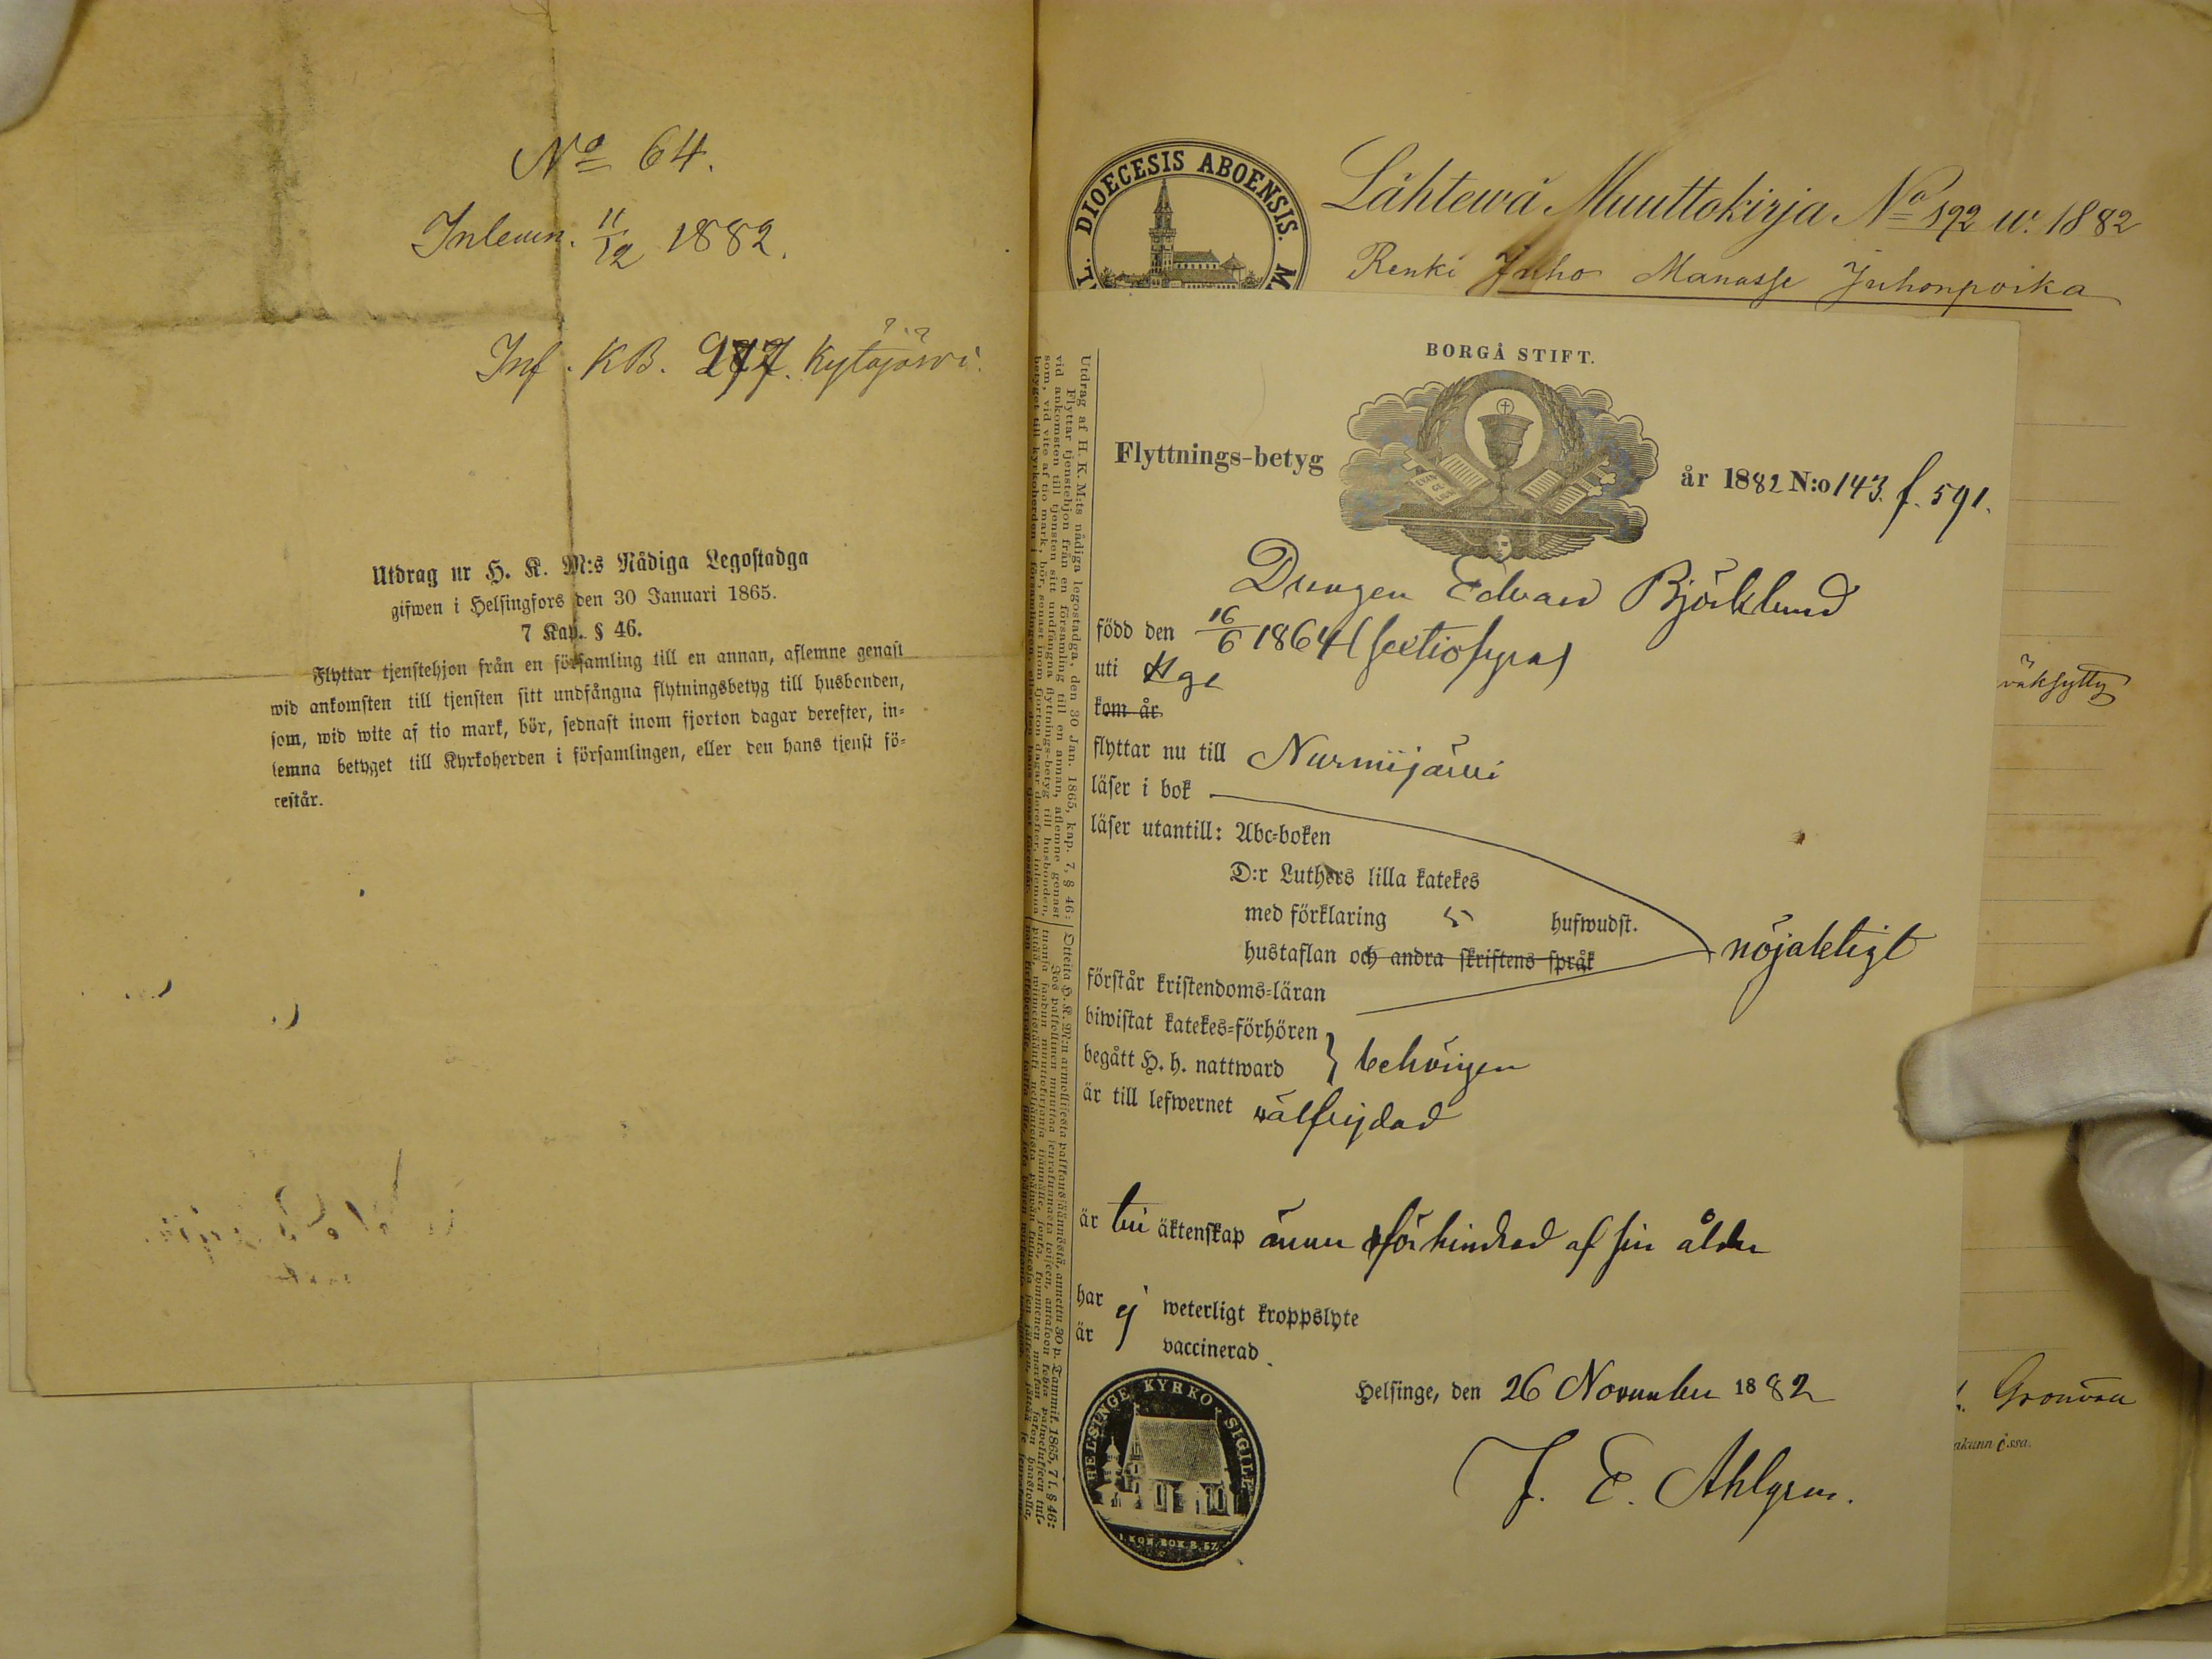 No 64.
Inlemn. 11/12 1882.
Inf. KB. 277. Kytäjärvi.
Utdrag ur H. K. M:s Nådiga Legostadga
gifwen i Helsingfors den 30 Januari 1865.
7 Kap. § 46.
Flyttar tjenstehjon från en församling till en annan, aflemne genast
wid ankomsten till tjensten sitt undfångna flytningsbetyg till husbonden,
som, wid wite af tio mark, bör, sednast inom fjorton dagar derefter, in-
lemna betyget till Kyrkoherden i församlingen, eller den hans tjenst fö-
restår.
DIOECESIS ABOENSIS.
Lähtewä Muuttokirja No 192 w. 1882
Renki Juho Manasse Juhonpoika
BORGÅ STIFT.
Flyttnings-betyg
år 1882 N:o 143. f. 591.
Drengen Edvard Björklund
född den 16/6 1864 (sextiofyra)
uti Hge
kom år
flyttar nu till Nurmijärvi
läser i bok
läser utantill: Abc-boken
D:r Luthers lilla katekes
med förklaring 5 hufwudst.
hustaflan och andra skriftens språk
nöjaktigt
förstår kristendoms-läran
biwistat katekes-förhören
begått H. h. nattward } behörigen
är till lefwernet välfrejdad
är till äktenskap ännu förhindrad af sin ålder
har ej weterligt kroppslyte
är vaccinerad
Helsinge, den 26 November 1882
J. E. Ahlgren.
HELSINGE KYRKO SIGILL
1. KON. BOK 8. 57.
Utdrag af H. K. M:ts nådiga legostadga, den 30 Jan. 1865, kap. 7, § 46:
Flyttar tjenstehjon från en församling till en annan, aflemne genast
vid ankomsten till tjensten sitt undfångna flyttnings-betyg till husbonden,
som, vid vite af tio mark, bör, senast inom fjorton dagar derefter, inlemna
betyget till kyrkoherden i församlingen, eller den hans tjenst förestår.
väksytty
Grönvall